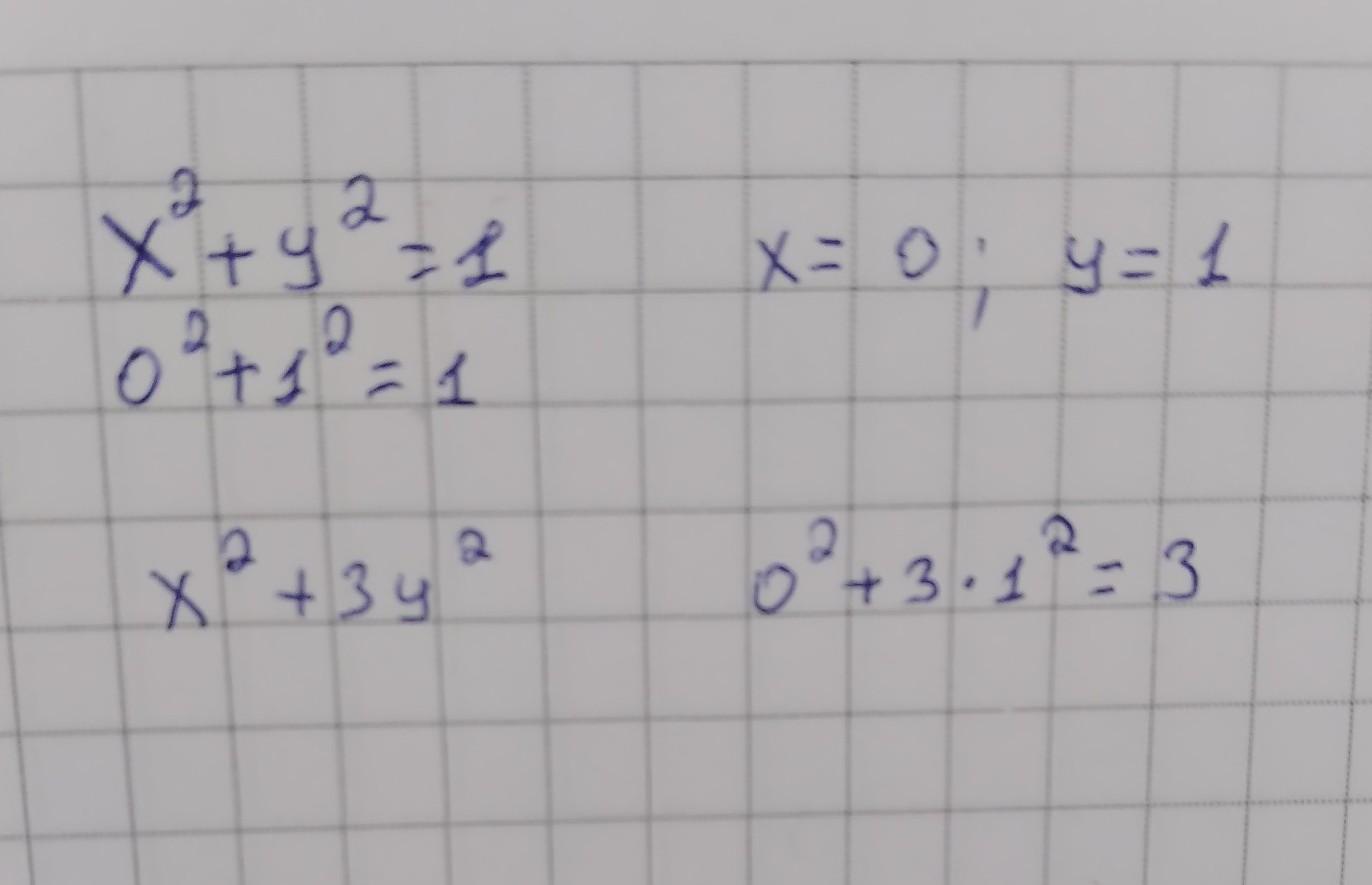 x² + y² = 1    x = 0 ; y = 1
0² + 1² = 1
x² + 3y²    0² + 3 · 1² = 3